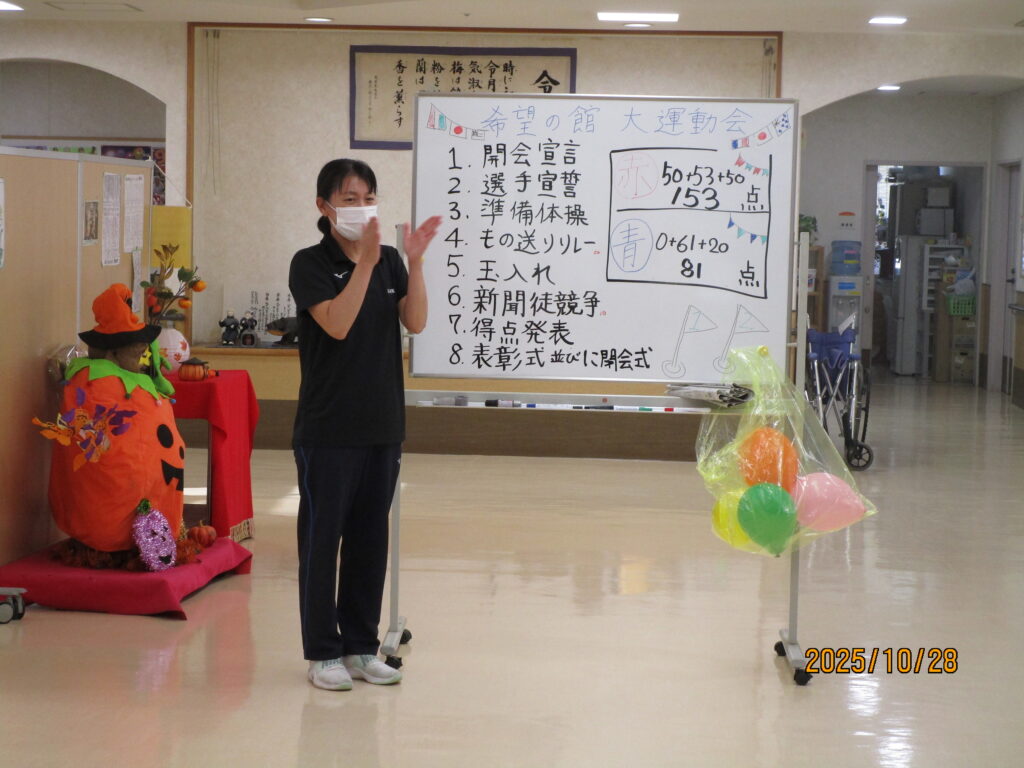 令
時に
令月
気淑
梅は
粉を
蘭は
香を薫らす
希望の館 大運動会
1. 開会宣言
2. 選手宣誓
3. 準備体操
4. もの送りリレー。
5. 玉入れ
6. 新聞徒競争。
7. 得点発表
8. 表彰式 並びに閉会式
赤 50+53+50
153 点
青 0+61+20
81 点
2025/10/28